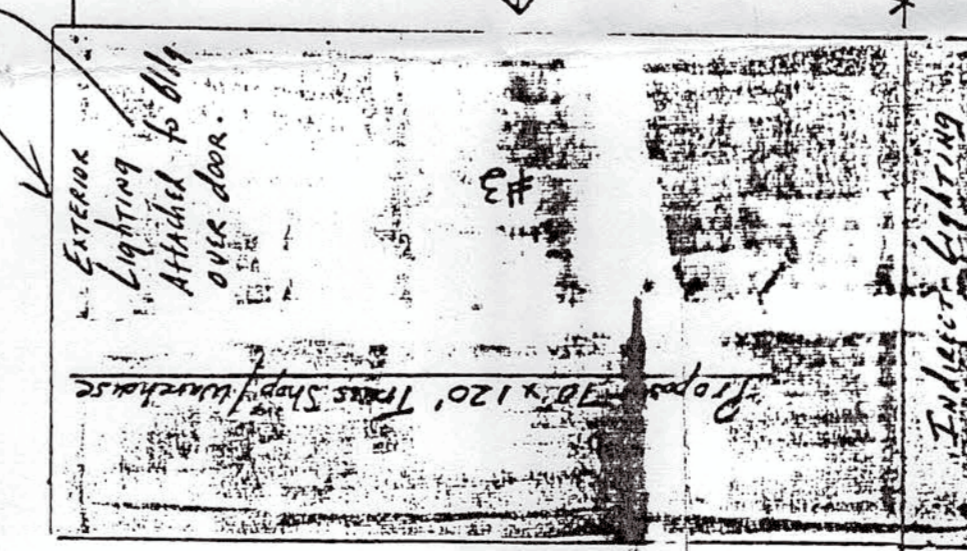 EXTERIOR
Lighting
Attached to bldg
over door.
#3
Propos 70' x 120' Truss Shop/Warehouse
INDIRECT LIGHTING